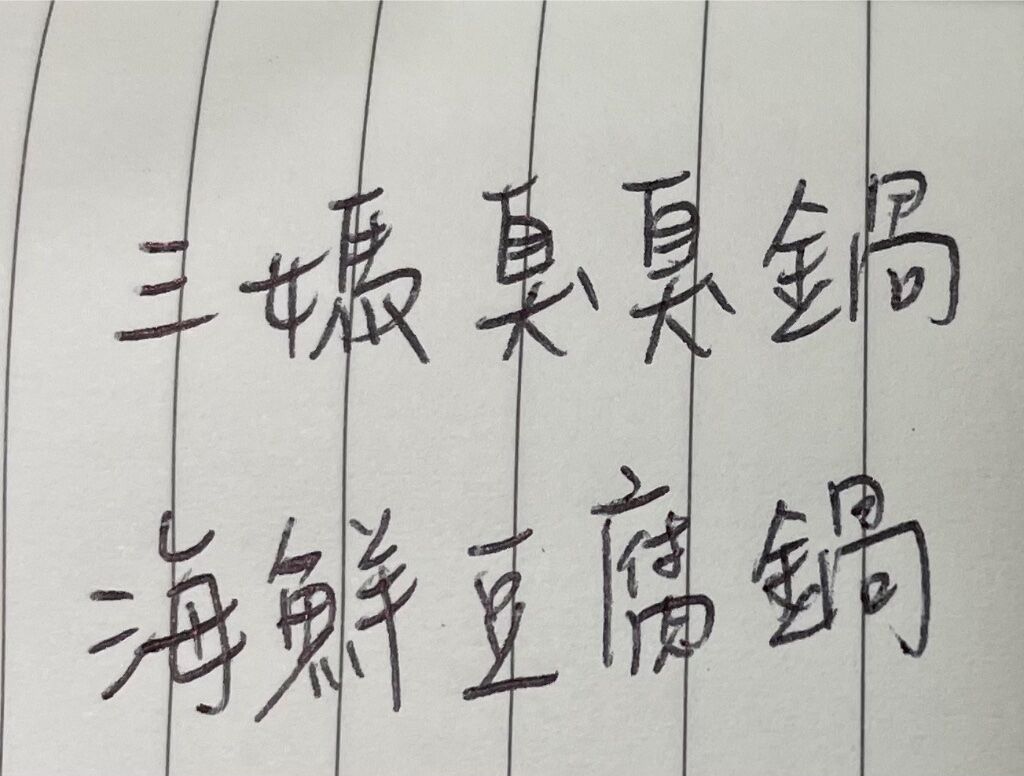 三媽臭臭鍋
海鮮豆腐鍋